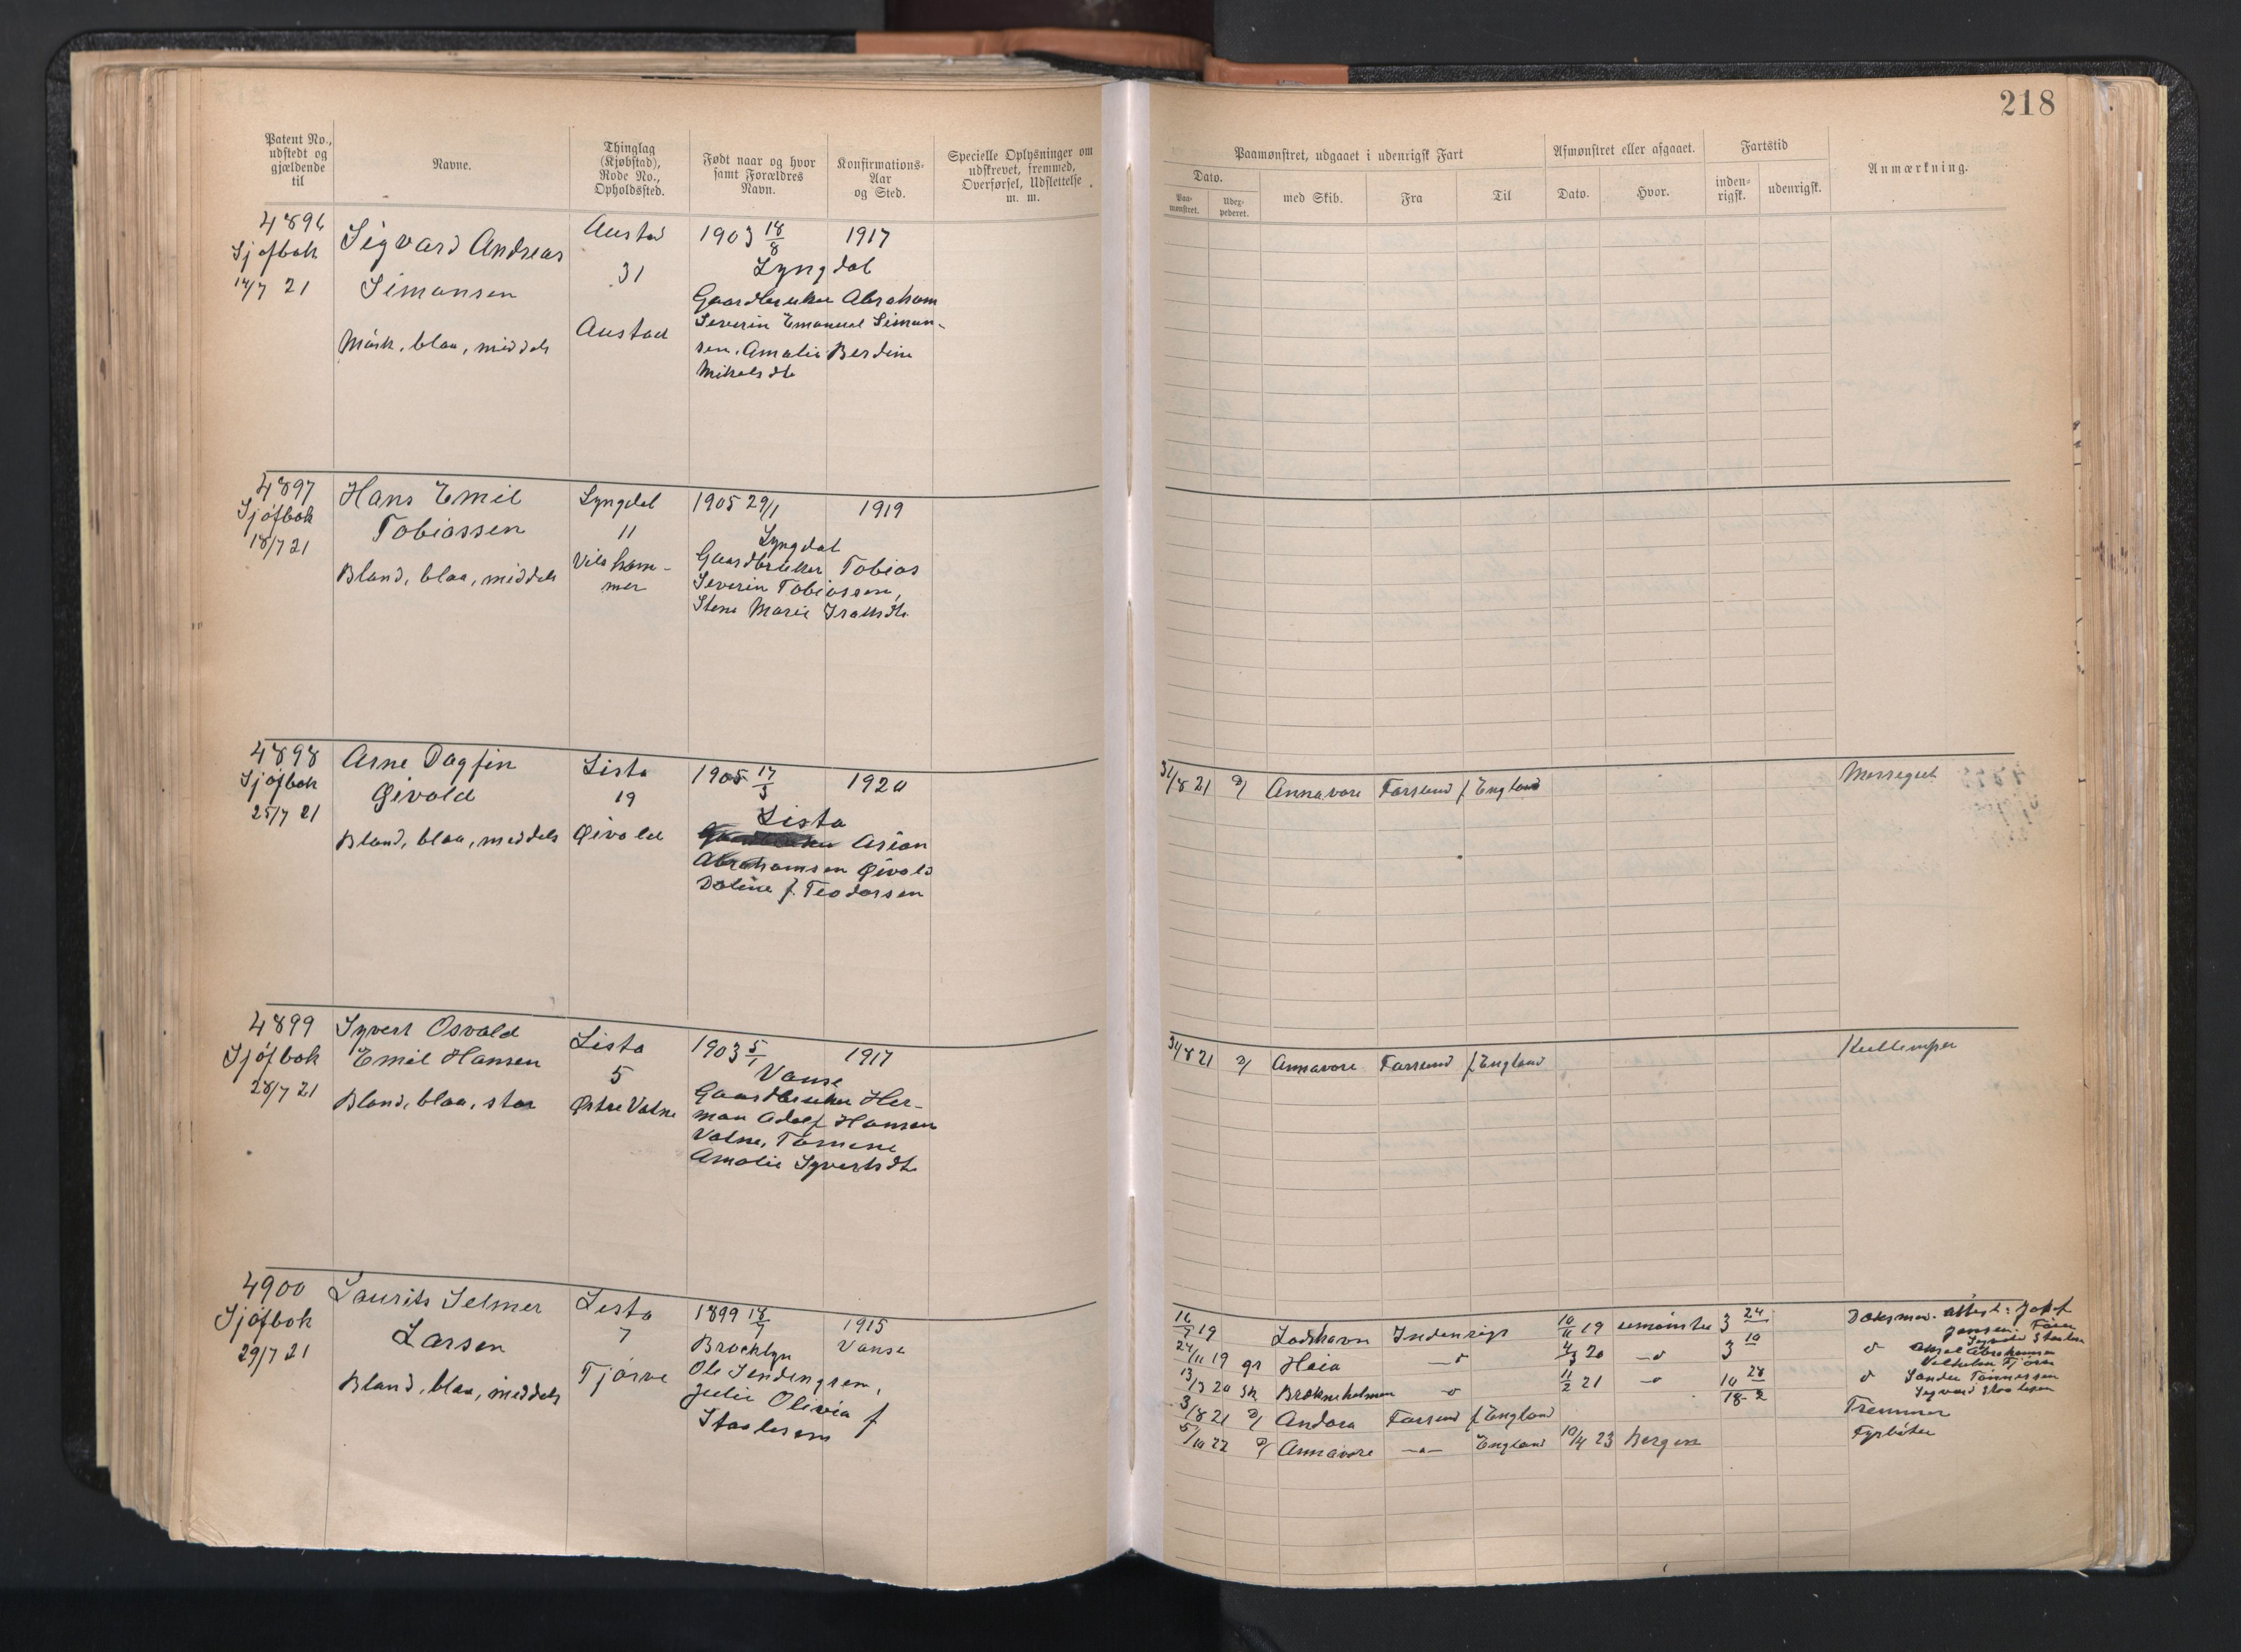 218
Patent No., udstedt og gjældende til
Navne.
Thinglag (Kjøbstad), Rode No., Opholdssted.
Født naar og hvor samt Forældres Navn.
Konfirmations-Aar og Sted.
Specielle Oplysninger om udskrevet, fremmed, Overførsel, Udslettelse m. m.
Paamønstret, udgaaet i udenrigsk Fart
Afmønstret eller afgaaet.
Fartstid
Anmærkning.
Dato.
Paa-mønstret.
Udex-pederet.
med Skib.
Fra
Til
Dato.
Hvor.
inden-rigsk.
udenrigsk.
4896 Sigvard Andreas Austad 1903 18/8 1917
Sjøfbok Simonsen 31 Lyngdal
14/7 21 Gaardbruker Abraham
Mørk, blaa, middels Austad Severin Emanuel Simon-
sen, Amalie Berdine
Mikalsdtr
4897 Hans Emil Lyngdal 1905 29/1 1919
Sjøfbok Tobiassen 11 Lyngdal
18/7 21 Gaardbruker Tobias
Bland, blaa, middels Severin Tobiassen,
mer Marie
4898 Arne Dagfin Lista 1905 17/3 1920
Sjøfbok Øivold 19 Lista
25/7 21 Bland, blaa, middels Øivold Arian
Abrahamsen Øivold
f. Teodorsen
31/8 21 D/ Annavore Farsund f England Messegut
4899 Syvert Osvald Lista 1903 5/1 1917
Sjøfbok Emil Hansen 5 Vanse
28/7 21 Gaardbruker Her-
Bland, blaa, stor Østre Vatne man Adolf Hansen
Vatne, Tomine
Amalie Syvertsdtr
31/8 21 D/ Annavore Farsund f. England Kullemper
4900 Laurits Selmer Lista 1899 18/9 1915
Sjøfbok Larsen 7 Brooklyn Vanse
29/7 21 Tjørve Ole
Bland, blaa, middels Julie Olivia f
Staalesen
16/7 19 Ladshavn Indenrigs 10/11 19 3 24
24/11 19 gr Heia — d 4/3 20 — d 3 10
13/3 20 sk — d 11/2 21 — d 10 28
18-2
3/8 21 D/ Andora Farsund f England Tremmer
5/10 22 D/ Annavore — " — England 10/4 23 Bergen Fyrbøter